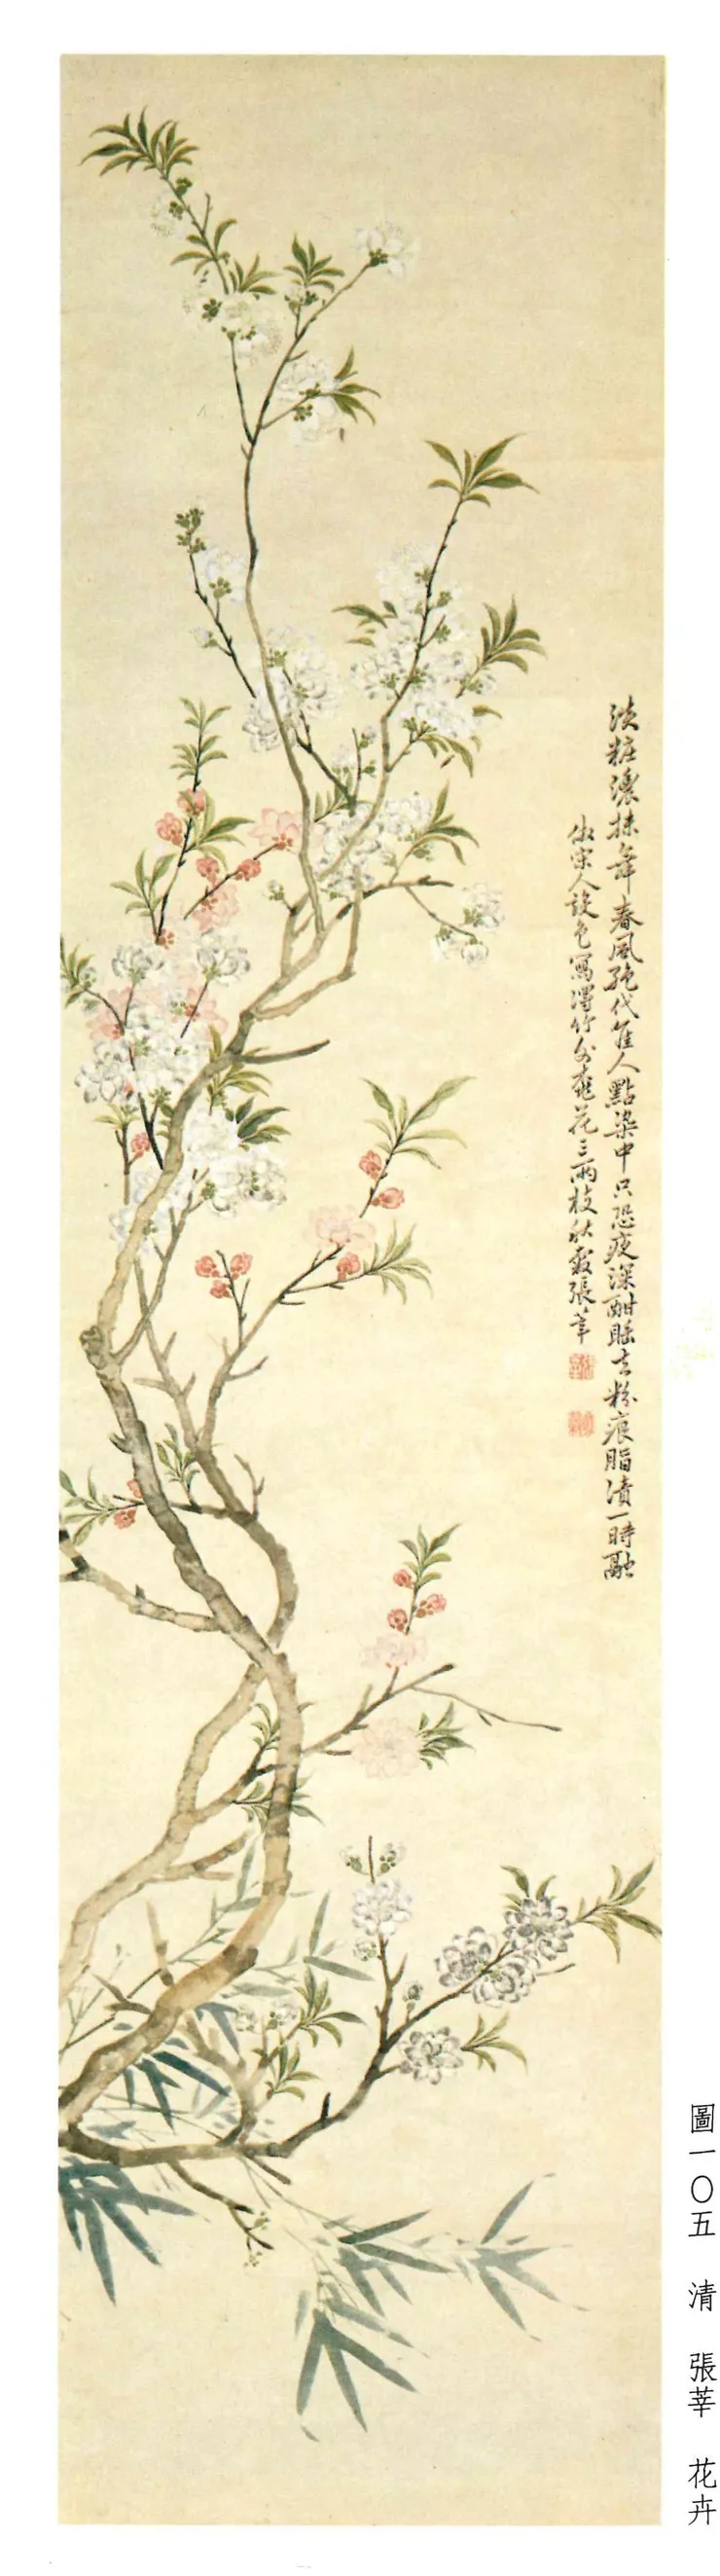 淡粧濃抹舞春風絶代佳人點染中只恐夜深酣睡去粉痕脂漬一時融
仿宋人設色寫得竹外桃花三兩枝秋穀張莘
圖一〇五 清 張莘 花卉